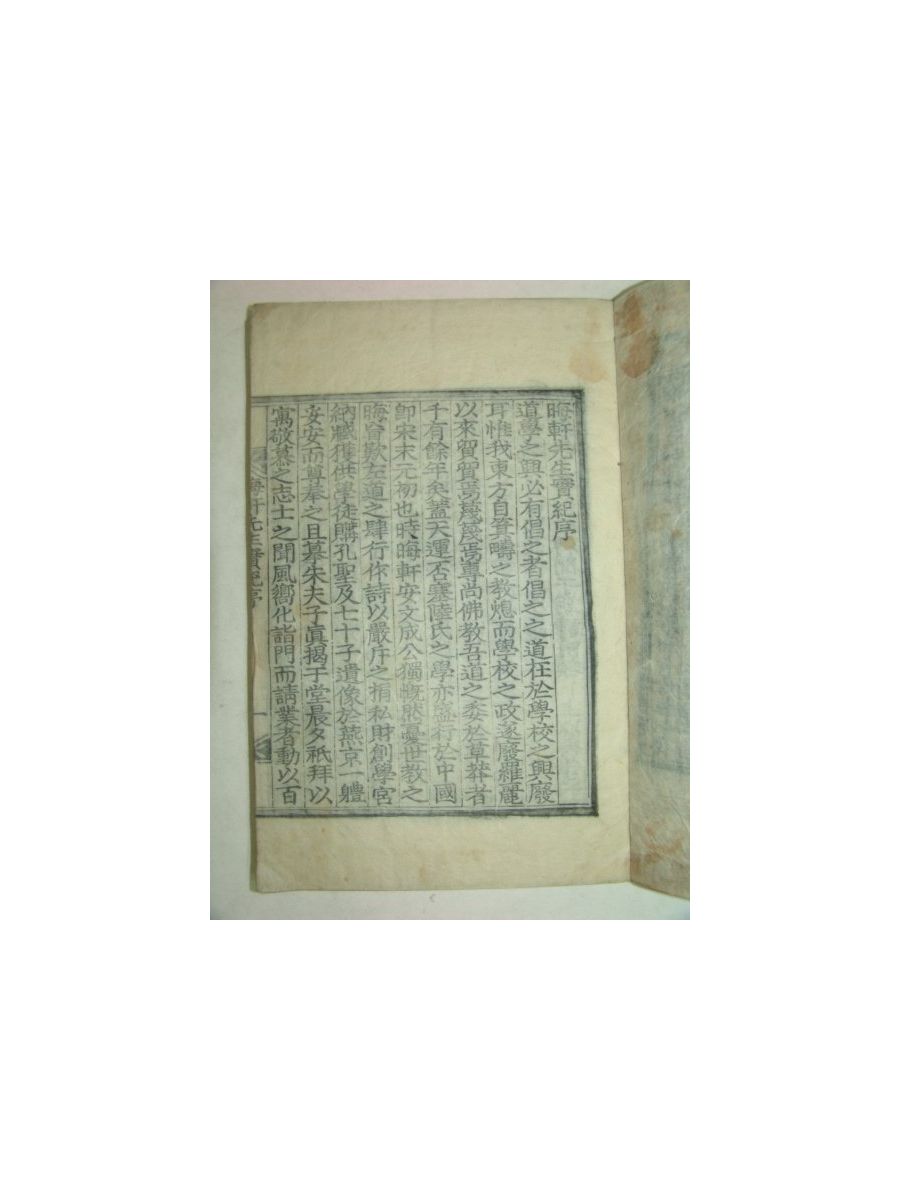 晦軒先生實紀序
道學之興必有倡之者倡之之道在於學校之興廢
耳惟我東方自箕疇之教熄而學校之政遂廢羅麗
以來貿貿焉蔑蔑焉專尚佛教吾道之委於草莽者
千有餘年矣蓋天運否塞陸氏之學亦盛行於中國
卽宋末元初也時晦軒安文成公獨慨然憂世教之
晦盲歎左道之肆行作詩以嚴斥之捐私財創學宮
納臧獲供學徒購孔聖及七十子遺像於燕京一軆
妥安而尊奉之且慕朱夫子眞揭于堂晨夕祇拜以
寓敬慕之志士之聞風嚮化詣門而請業者動以百
晦軒先生實紀序
一